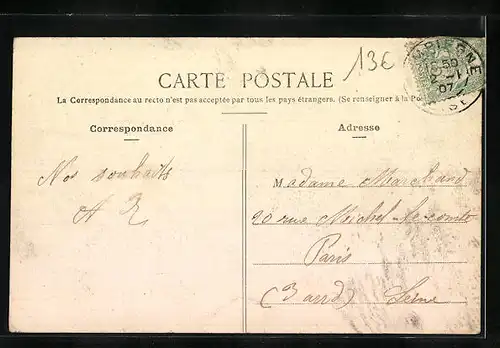 13€
CARTE POSTALE
La Correspondance au recto n'est pas acceptée par tous les pays étrangers. (Se renseigner à la Po
Correspondance
Adresse
Nos souhaits
Madame Marchand
20 rue Michel-le-comte
Paris
(3 arrd) Seine